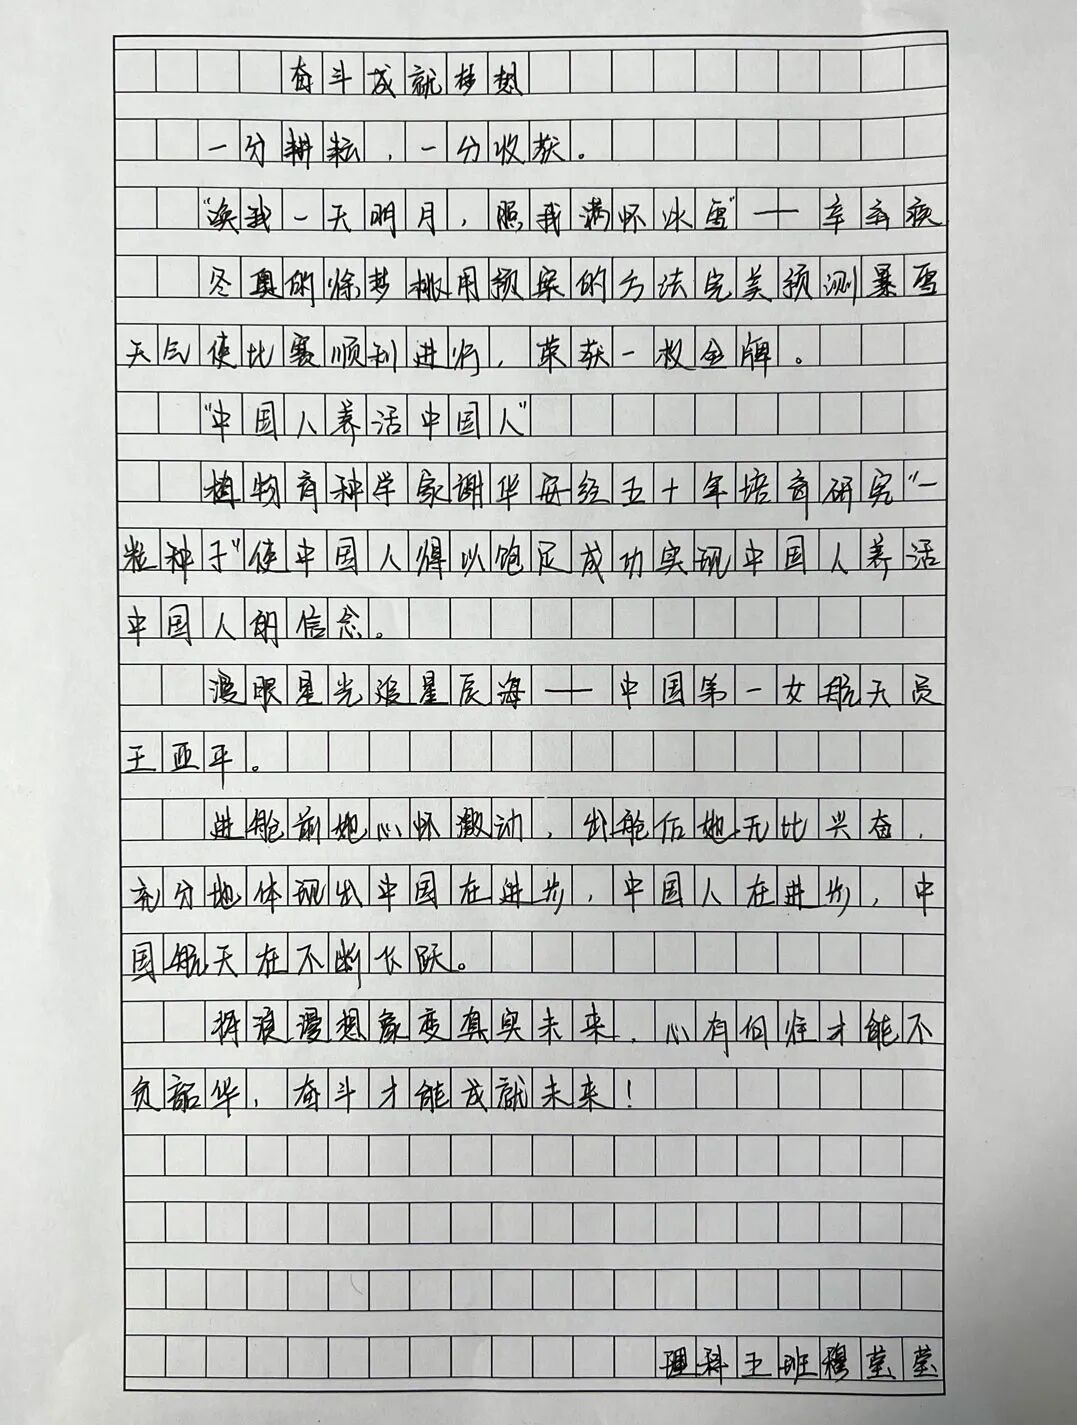 奋斗成就梦想
一分耕耘，一分收获。
“换我一天明月，照我满怀冰雪”——辛弃疾
冬奥的徐梦桃用预案的方法完美预测暴雪
天气使比赛顺利进行，荣获一枚金牌。
“中国人养活中国人”
植物育种学家谢华安经五十年培育研究“一
粒种子”使中国人得以饱足成功实现中国人养活
中国人的信念。
漫眼星光追星辰海——中国第一女航天员
王亚平。
进舱前她心怀激动，出舱后她无比兴奋，
充分地体现出中国在进步，中国人在进步，中
国航天在不断飞跃。
将浪漫想象变真实未来，心有何往才能不
负韶华，奋斗才能成就未来！
理科王班穆莹莹